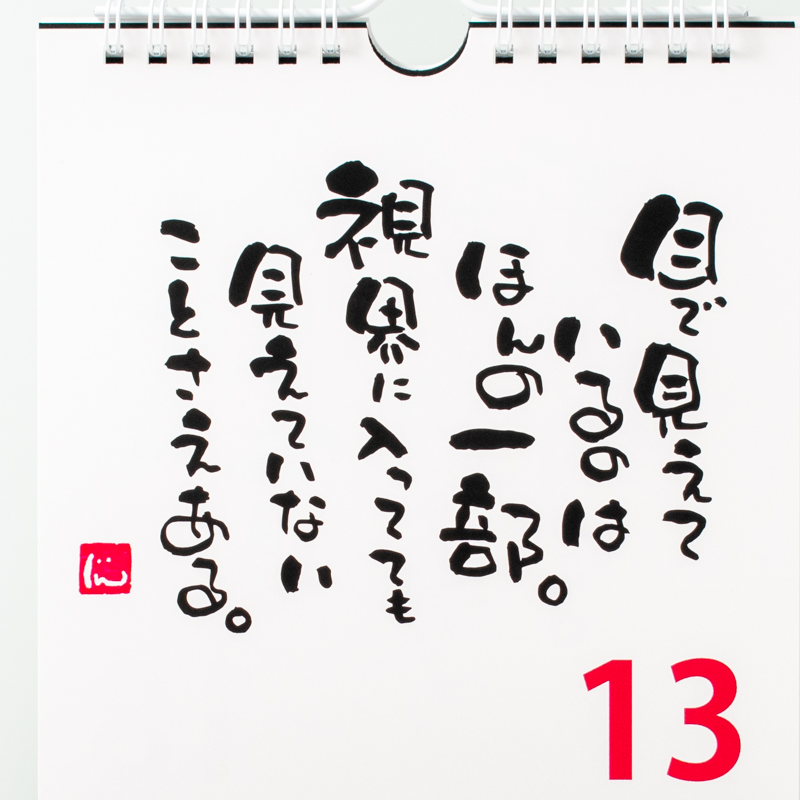 目で見えて
いるのは
ほんの一部。
視界に入っても
見えていない
ことさえある。
じん
13